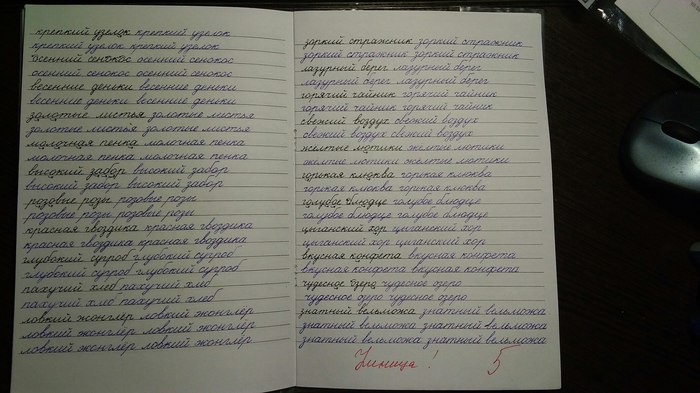 крепкий узелок крепкий узелок
крепкий узелок крепкий узелок
осенний сенокос осенний сенокос
осенний сенокос осенний сенокос
весенние деньки весенние деньки
весенние деньки весенние деньки
золотые листья золотые листья
золотые листья золотые листья
молочная пенка молочная пенка
молочная пенка молочная пенка
высокий забор высокий забор
высокий забор высокий забор
розовые розы розовые розы
розовые розы розовые розы
красная гвоздика красная гвоздика
красная гвоздика красная гвоздика
глубокий сугроб глубокий сугроб
глубокий сугроб глубокий сугроб
пахучий хлеб пахучий хлеб
пахучий хлеб пахучий хлеб
ловкий жонглёр ловкий жонглёр
ловкий жонглёр ловкий жонглёр
ловкий жонглёр ловкий жонглёр
зоркий стражник зоркий стражник
зоркий стражник зоркий стражник
лазурный берег лазурный берег
лазурный берег лазурный берег
горячий чайник горячий чайник
горячий чайник горячий чайник
свежий воздух свежий воздух
свежий воздух свежий воздух
желтые лютики желтые лютики
желтые лютики желтые лютики
горькая клюква горькая клюква
горькая клюква горькая клюква
голубое блюдце голубое блюдце
голубое блюдце голубое блюдце
цыганский хор цыганский хор
цыганский хор цыганский хор
вкусная конфета вкусная конфета
вкусная конфета вкусная конфета
чудесное озеро чудесное озеро
чудесное озеро чудесное озеро
знатный вельможа знатный вельможа
знатный вельможа знатный вельможа
знатный вельможа знатный вельможа
Умница! 5